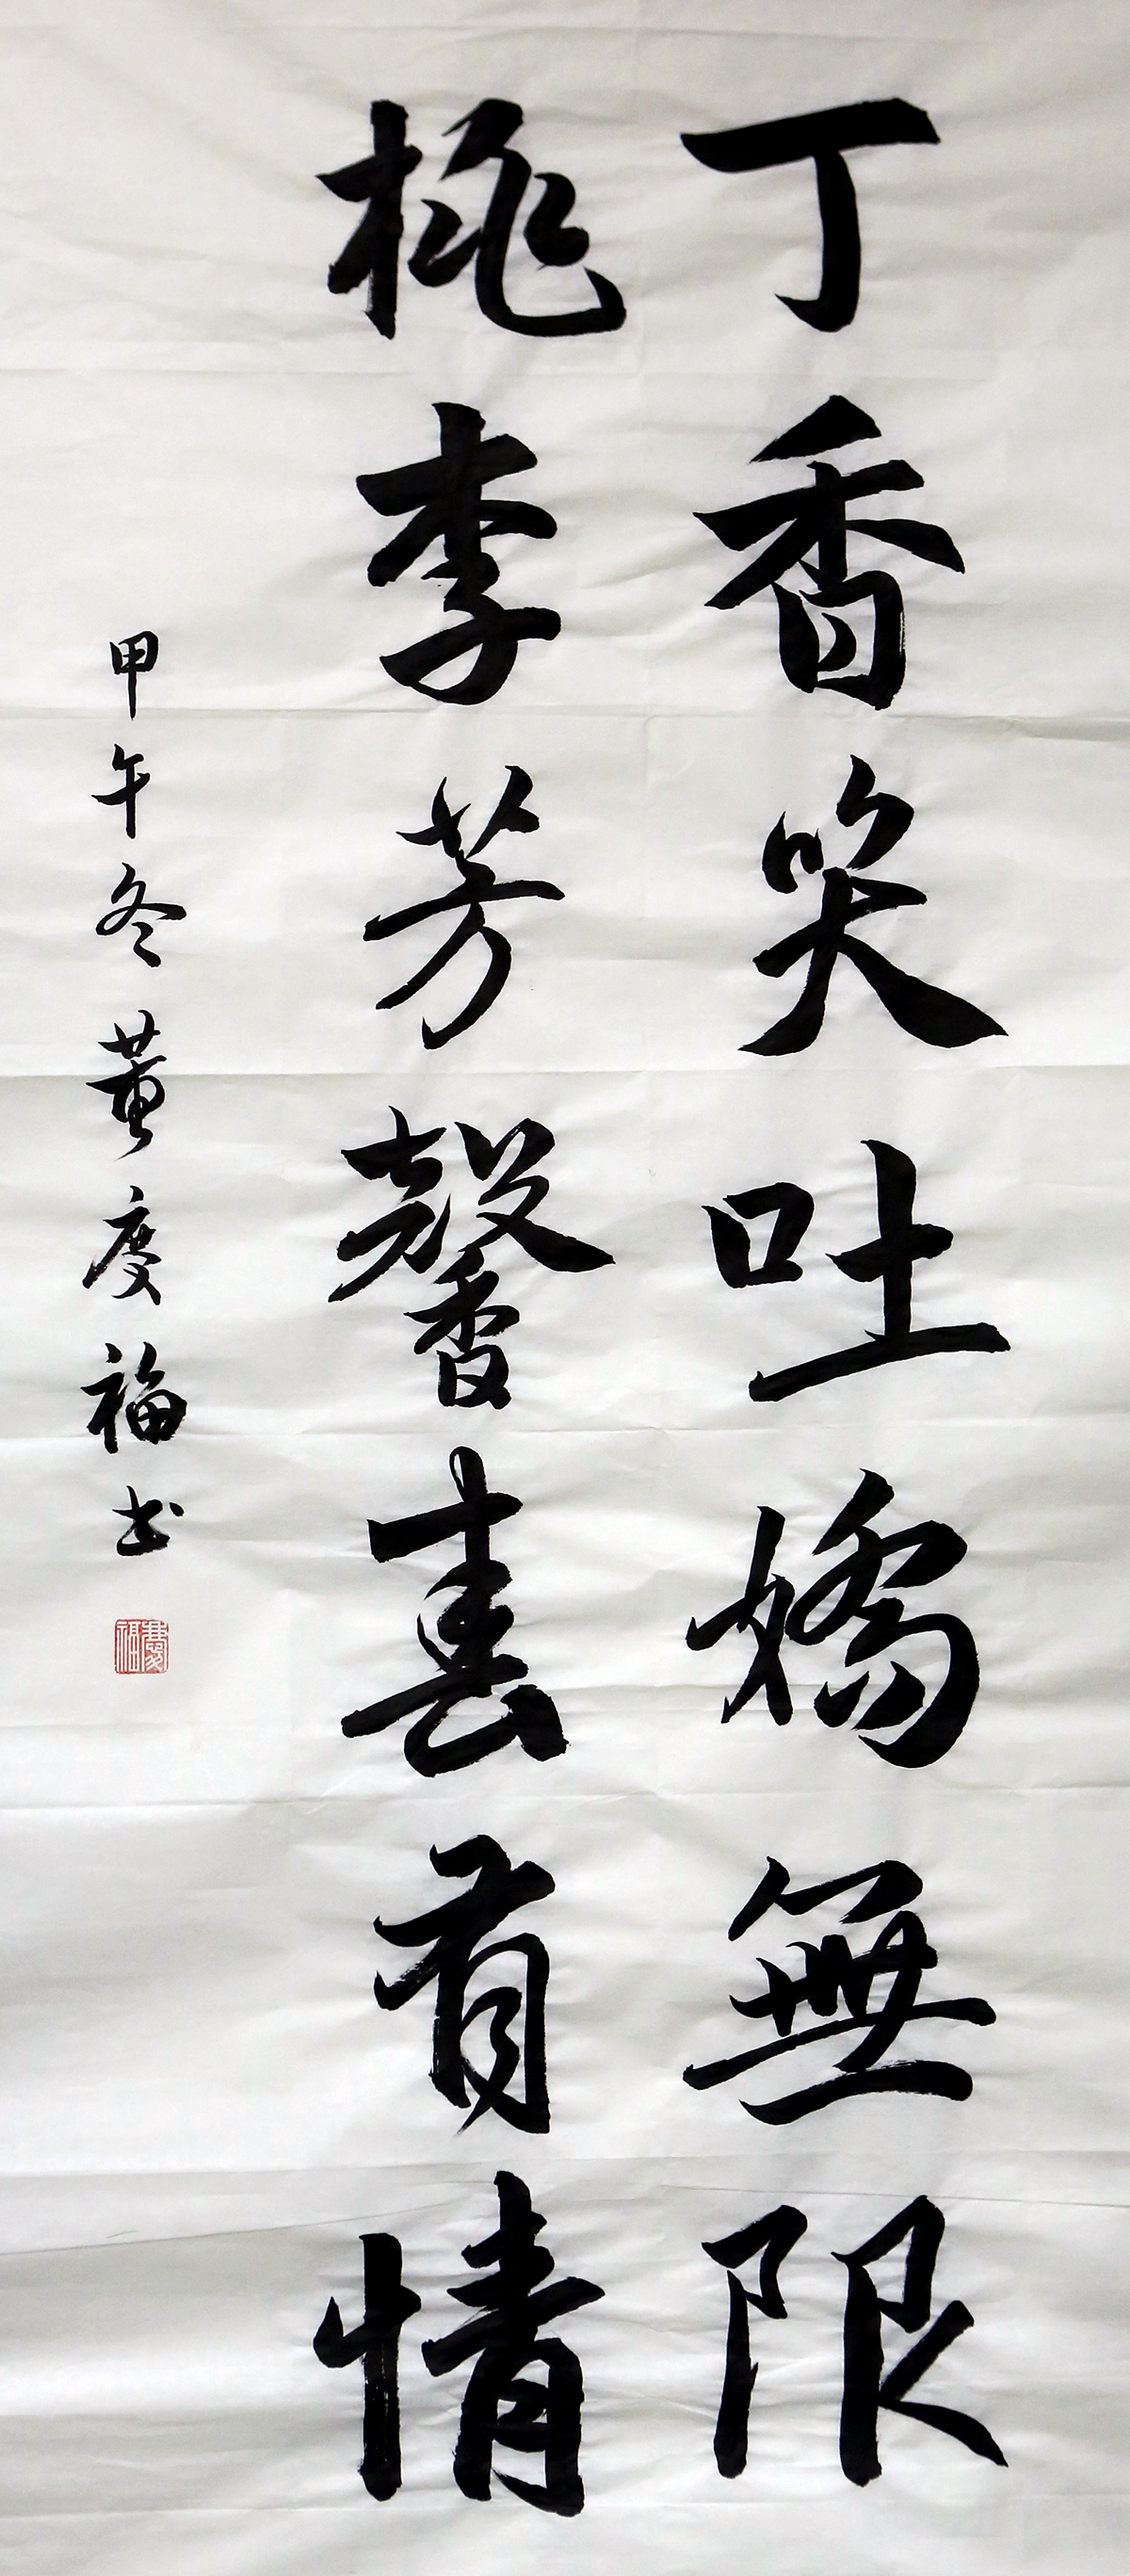 丁香笑吐嬌無限
桃李芳馨喜有情
甲午冬董慶福书
慶福